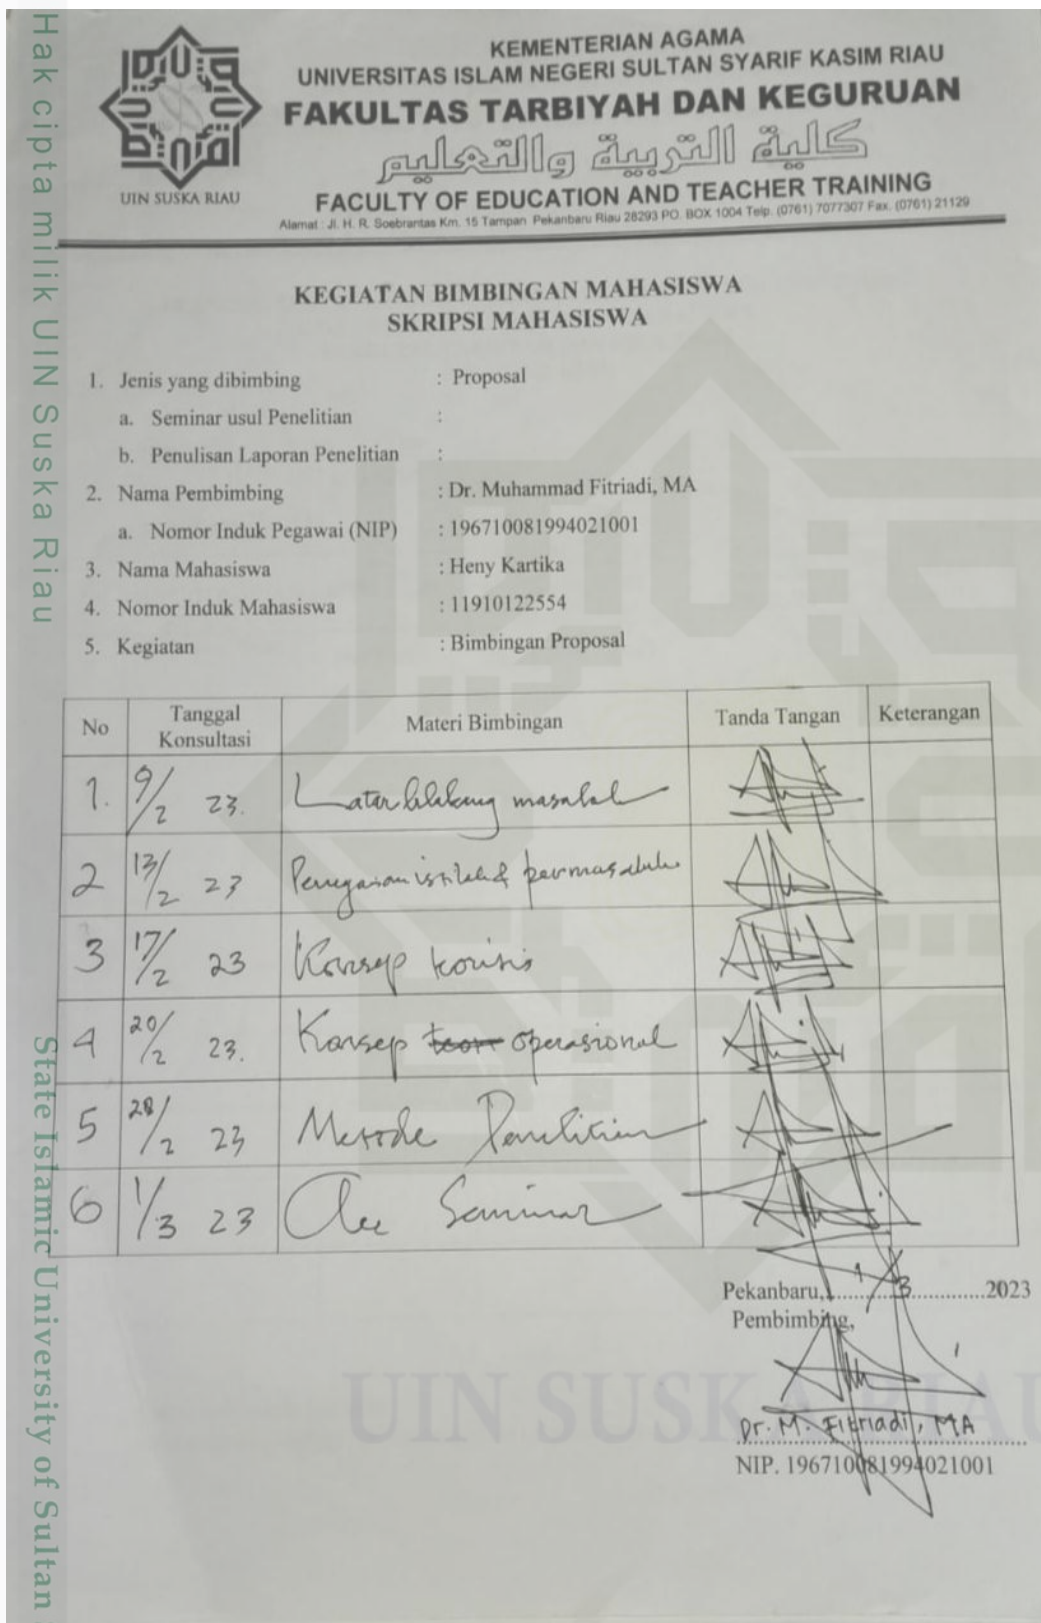 Hak cipta milik UIN Suska Riau
State Islamic University of Sultan
UIN SUSKA RIAU
KEMENTERIAN AGAMA
UNIVERSITAS ISLAM NEGERI SULTAN SYARIF KASIM RIAU
FAKULTAS TARBIYAH DAN KEGURUAN
كلية التربية والتعليم
FACULTY OF EDUCATION AND TEACHER TRAINING
Alamat : Jl. H. R. Soebrantas Km. 15 Tampan Pekanbaru Riau 28293 PO. BOX 1004 Telp. (0761) 7077307 Fax. (0761) 21129
KEGIATAN BIMBINGAN MAHASISWA
SKRIPSI MAHASISWA
1. Jenis yang dibimbing : Proposal
a. Seminar usul Penelitian :
b. Penulisan Laporan Penelitian :
2. Nama Pembimbing : Dr. Muhammad Fitriadi, MA
a. Nomor Induk Pegawai (NIP) : 196710081994021001
3. Nama Mahasiswa : Heny Kartika
4. Nomor Induk Mahasiswa : 11910122554
5. Kegiatan : Bimbingan Proposal
No Tanggal Konsultasi Materi Bimbingan Tanda Tangan Keterangan
1. 9/2 23. Latar belakang masalah
2 13/2 23 Penegasan istilah & permasalah
3 17/2 23 Konsep
4 20/2 23. Konsep operasional
5 28/2 23 Metode Penelitian
6 1/3 23 Acc Seminar
Pekanbaru, 1/3 2023
Pembimbing,
Dr. M. Fitriadi, MA
NIP. 196710081994021001
UIN SUSKA RIAU